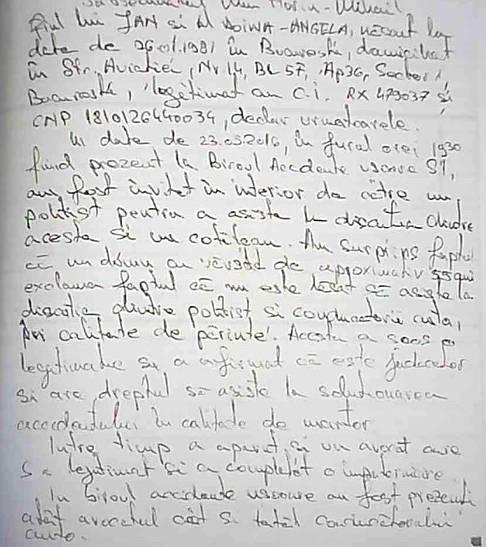 Fiul lui JAN și al DOINA-ANGELA, născut la
data de 26.01.1981 în București, domiciliat
în Str. Aviatiei, Nr 14, BL 5F, Ap36, Sector 1,
București, legitimat cu C.i. RX 479037 și
CNP 1810126440034, declar urmatoarele.
In data de 23.03.2016, în jurul orei 1930
fiind prezent la Biroul Accidente usoare S1,
am fost invitat în interior de către un
politist pentru a asista la discutia dintre
acesta si un cetățean. Am surprins faptul
că un domn cu vârsta de aproximativ 55 ani
exclama faptul că nu este lăsat să asiste la
discutia dintre politist si conducatorii auto,
în calitate de părinte. Acesta a scos o
legitimatie si a afirmat că este judecator
si are dreptul să asiste la solutionarea
accidentului în calitate de martor.
Intre timp a aparut si un avocat care
s-a legitimat si a completat o imputernicire.
In biroul accidente usoare au fost prezenti
atât avocatul cât si tatăl conducătorului
auto.